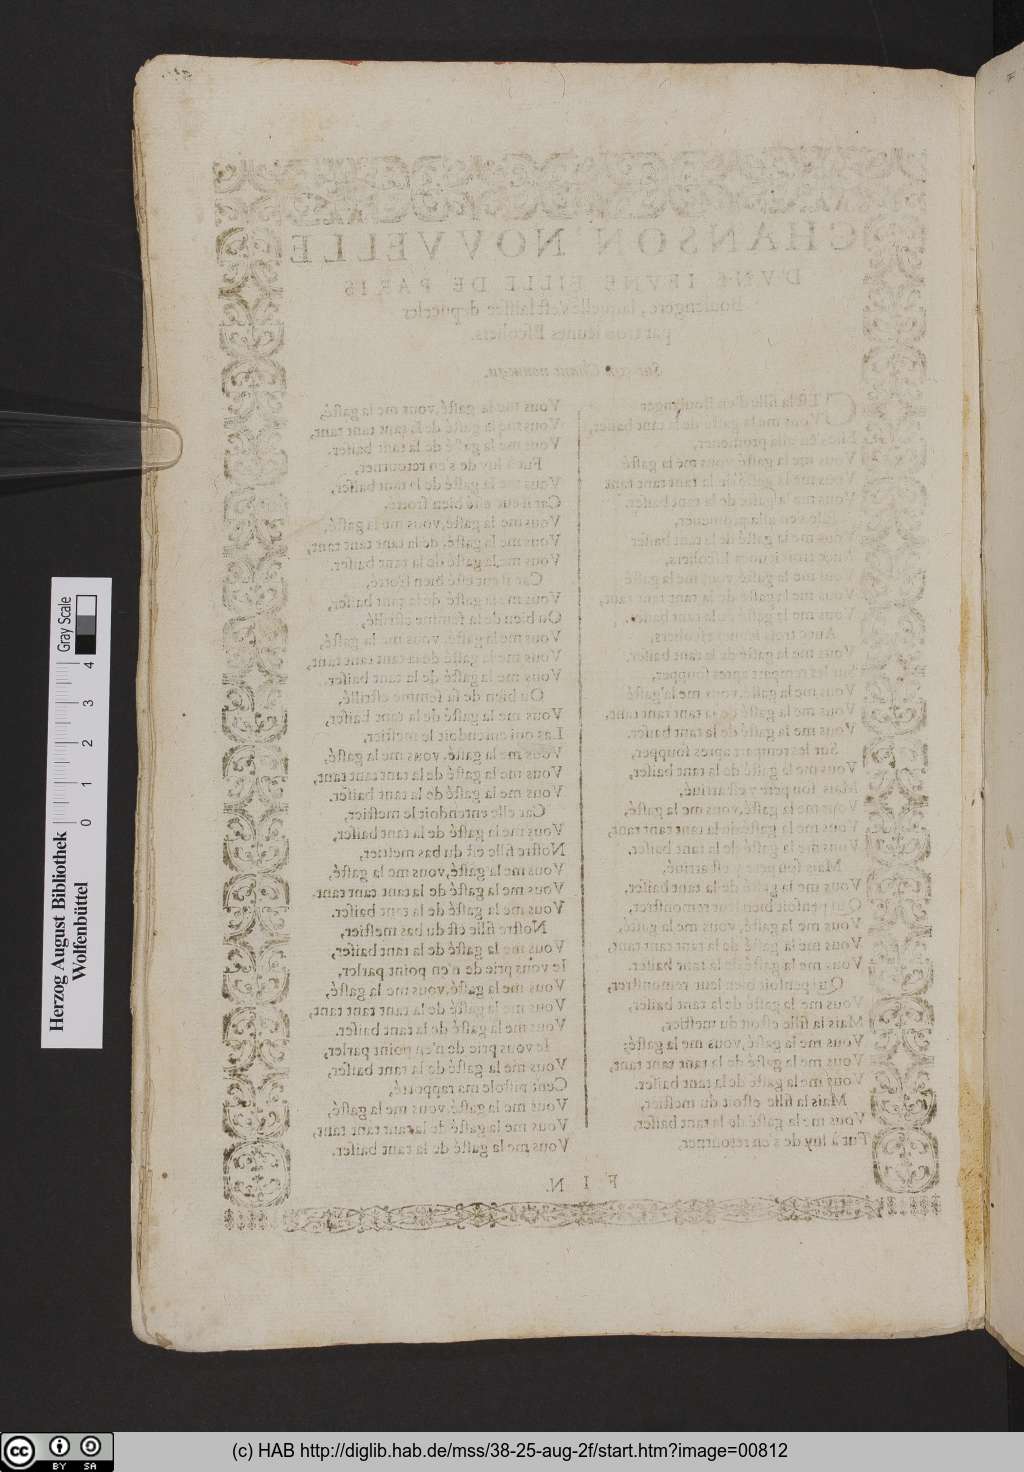 CHANSON NOVVELLE
D'VNE IEVNE FILLE DE PARIS
Boulengere, laquelle s'est laissée depuceler
par trois ieunes Escoliers.
Sur vn Chant nouueau.
C'Est la fille d'vn Boulenger
Vous me la gasté de la tant baiser,
promener,
Vous me la gasté vous me la gasté
Vous me la gasté de la tant tant tant
Vous me la gasté de la tant baiser.
promener,
Vous me la gasté de la tant baiser
Auec trois ieunes Escoliers,
Vous me la gasté vous me la gasté
Vous me la gasté de la tant tant tant,
Vous me la gasté de la tant baiser.
Auec trois ieunes Escoliers,
Vous me la gasté de la tant baiser,
Sur les rempart apres soupper,
Vous me la gasté, vous me la gasté
Vous me la gasté de la tant tant tant,
Vous me la gasté de la tant baiser.
Sur les rempart apres soupper,
Vous me la gasté de la tant baiser,
Mais son pere y est arriué,
Vous me la gasté, vous me la gasté,
Vous me la gasté de la tant tant tant,
Vous me la gasté de la tant baiser.
Mais son pere y est arriué,
Vous me la gasté de la tant baiser,
Qui pensoit bien leur remonstrer,
Vous me la gasté, vous me la gasté,
Vous me la gasté de la tant tant tant,
Vous me la gasté de la tant baiser.
Qui pensoit bien leur remonstrer,
Vous me la gasté de la tant baiser,
Mais la fille estoit du mestier,
Vous me la gasté, vous me la gasté;
Vous me la gasté de la tant tant tant,
Vous me la gasté de la tant baiser.
Mais la fille estoit du mestier,
Vous me la gasté de la tant baiser,
Fut à luy de s'en retourner,
Vous me la gasté, vous me la gasté,
Vous me la gasté de la tant tant tant,
Vous me la gasté de la tant baiser.
Fut à luy de s'en retourner,
Vous me la gasté de la tant baiser,
Car il eut esté bien frotté.
Vous me la gasté, vous me la gasté,
Vous me la gasté, de la tant tant tant,
Vous me la gasté de la tant baiser.
Car il eut esté bien frotté,
Vous me la gasté de la tant baiser,
Ou bien de sa femme estrillé,
Vous me la gasté, vous me la gasté,
Vous me la gasté de la tant tant tant,
Vous me la gasté de la tant baiser.
Ou bien de sa femme estrillé,
Vous me la gasté de la tant baiser,
Las oui entendoit le mestier,
Vous me la gasté, vous me la gasté,
Vous me la gasté de la tant tant tant,
Vous me la gasté de la tant baiser.
Car elle entendoit le mestier,
Vous me la gasté de la tant baiser,
Nostre fille est du bas mestier,
Vous me la gasté, vous me la gasté,
Vous me la gasté de la tant tant tant
Vous me la gasté de la tant baiser.
Nostre fille est du bas mestier,
Vous me la gasté de la tant baiser,
Ie vous prie de n'en point parler,
Vous me la gasté, vous me la gasté,
Vous me la gasté de la tant tant tant,
Vous me la gasté de la tant baiser.
Ie vous prie de n'en point parler,
Vous me la gasté de la tant baiser,
Cent pistole ma rapporté,
Vous me la gasté, vous me la gasté,
Vous me la gasté de la tant tant tant,
Vous me la gasté de la tant baiser.
F I N.
Herzog August Bibliothek
Wolfenbüttel
0 1 2 3 4
Gray Scale
cc BY SA
(c) HAB http://diglib.hab.de/mss/38-25-aug-2f/start.htm?image=00812